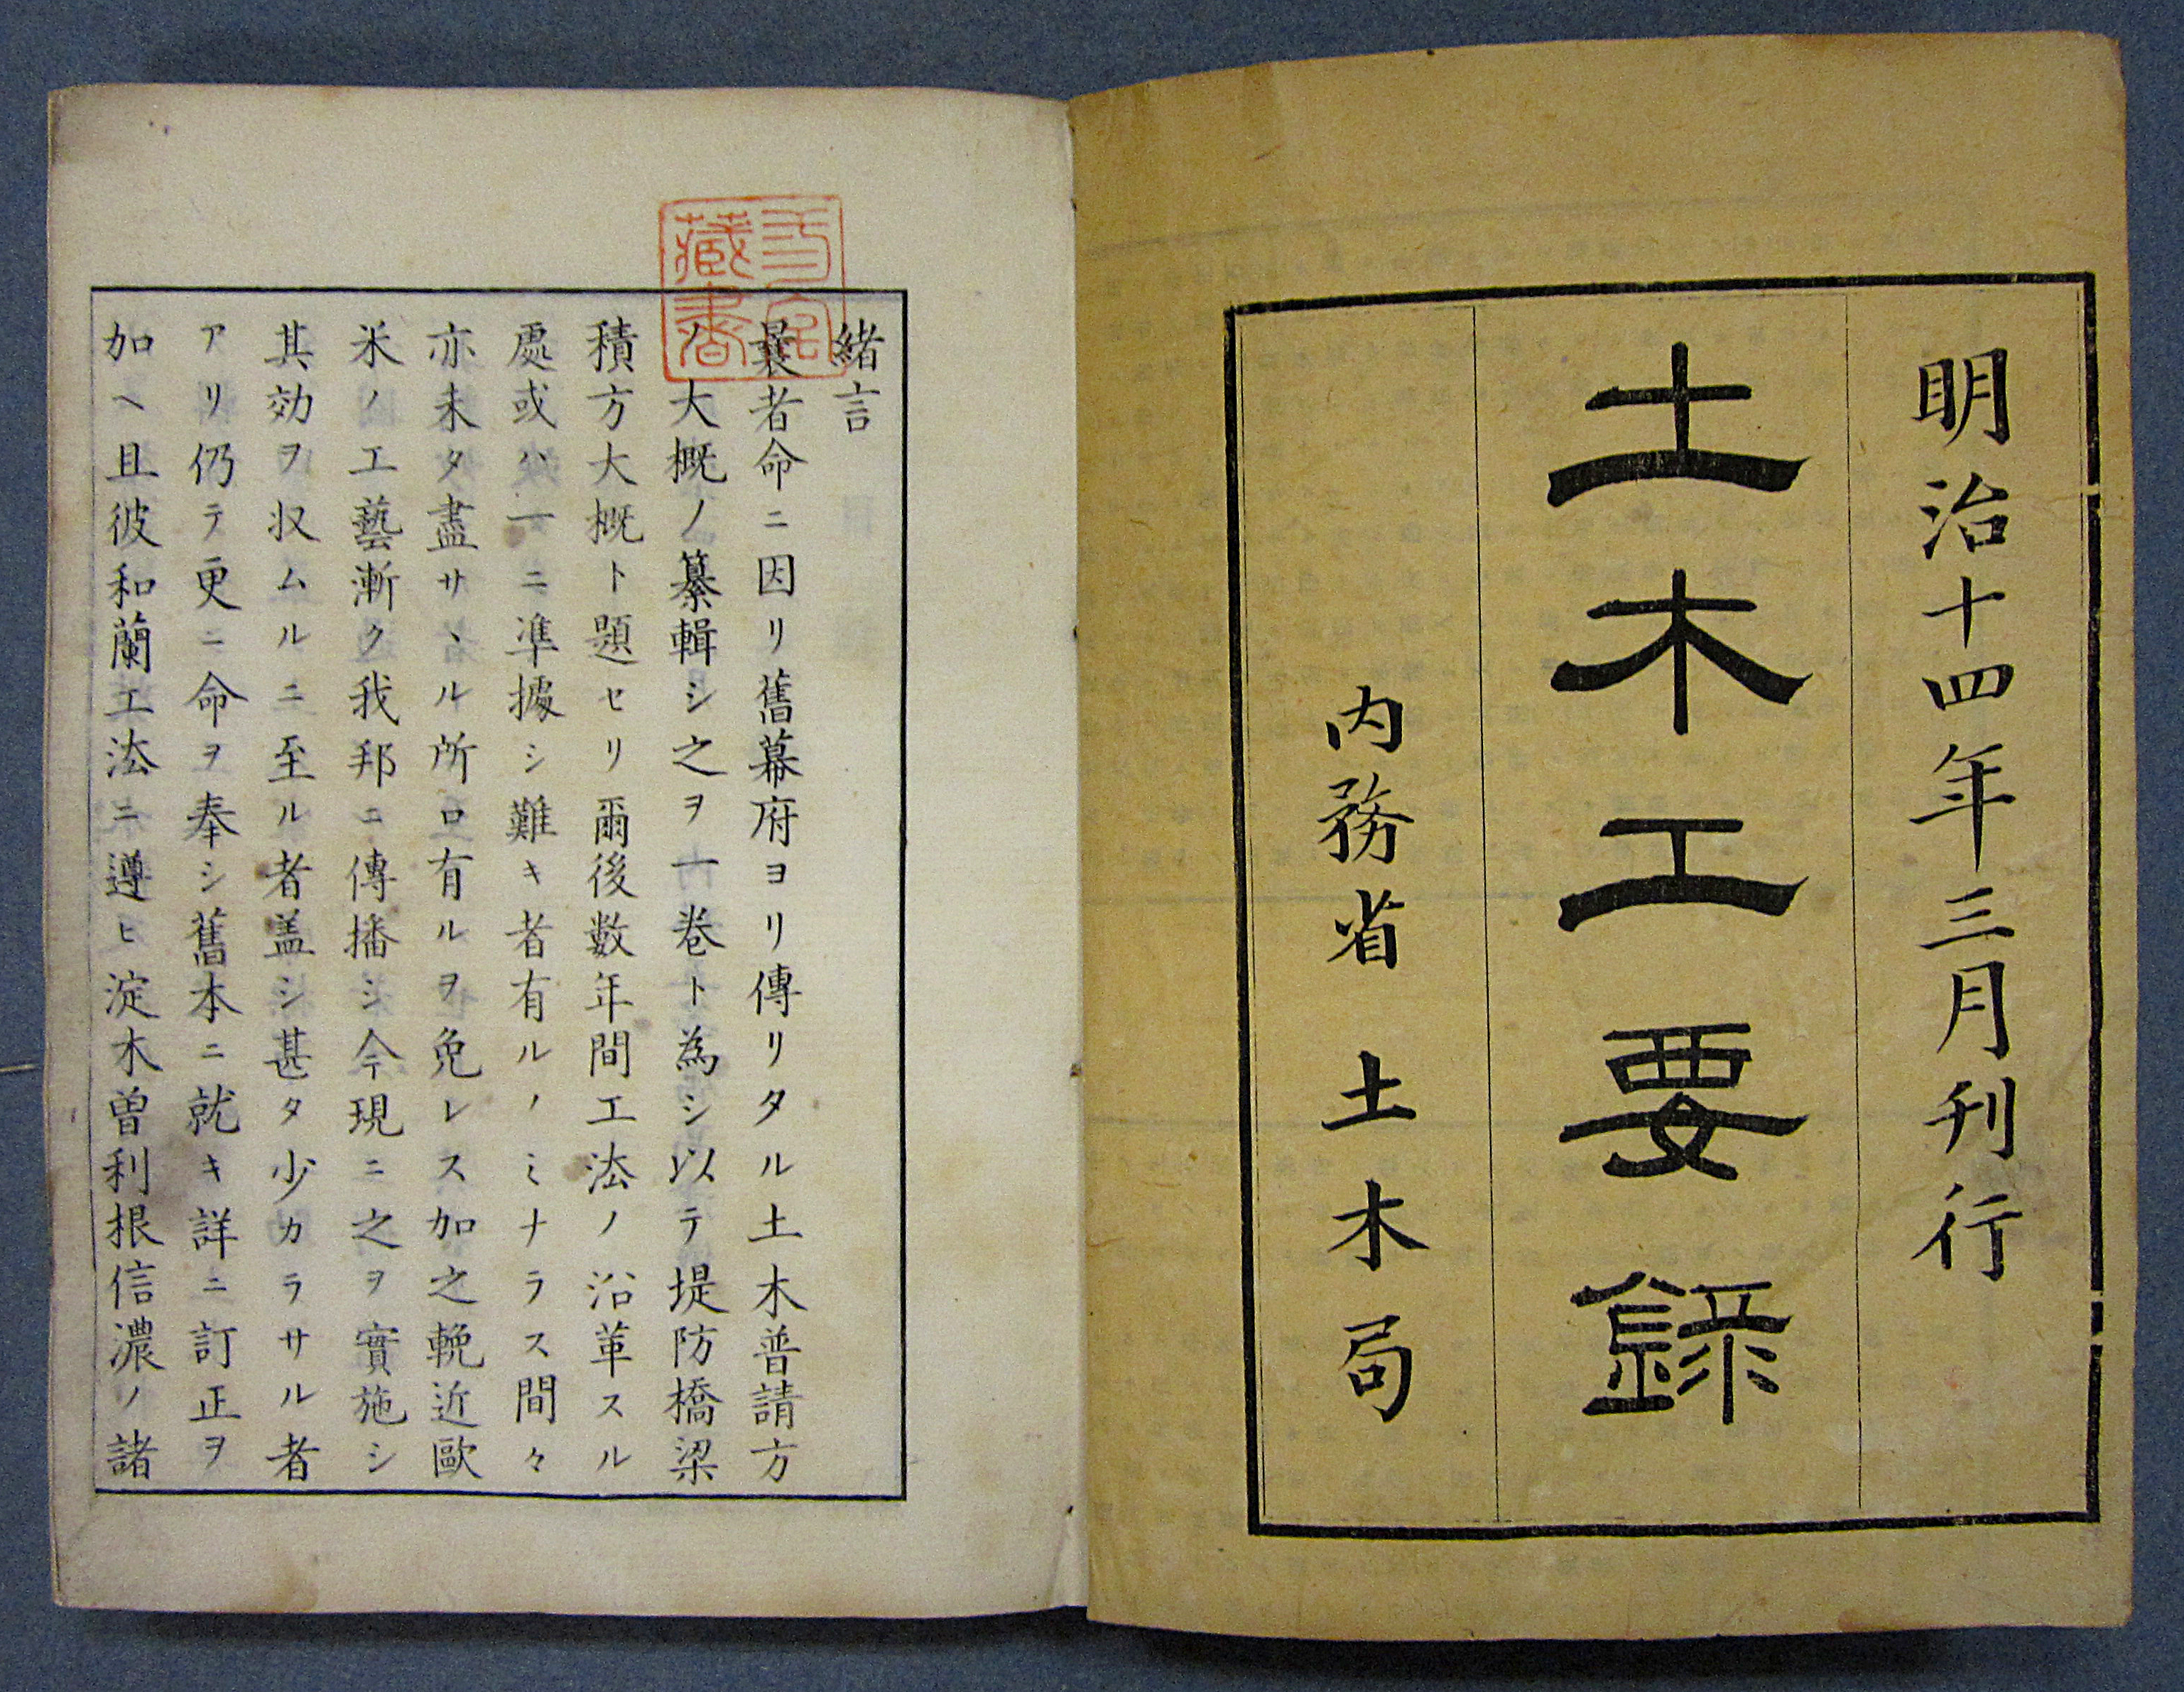 明治十四年三月刊行
土木工要録
内務省 土木局
緒言
曩者命ニ因リ舊幕府ヨリ傳リタル土木普請方
ノ大概ノ纂輯シ之ヲ一卷ト為シ以テ堤防橋梁
積方大概ト題セリ爾後數年間工法ノ沿革スル
處或ハ一ニ準據シ難キ者有ルノミナラス間々
亦未タ盡サヽル所ロ有ルヲ免レス加之輓近歐
米ノ工藝漸ク我邦ニ傳播シ今現ニ之ヲ實施シ
其効ヲ収ムルニ至ル者盖シ甚タ少カラサル者
アリ仍テ更ニ命ヲ奉シ舊本ニ就キ詳ニ訂正ヲ
加ヘ且彼和蘭工法ニ遵ヒ淀木曽利根信濃ノ諸
藏書